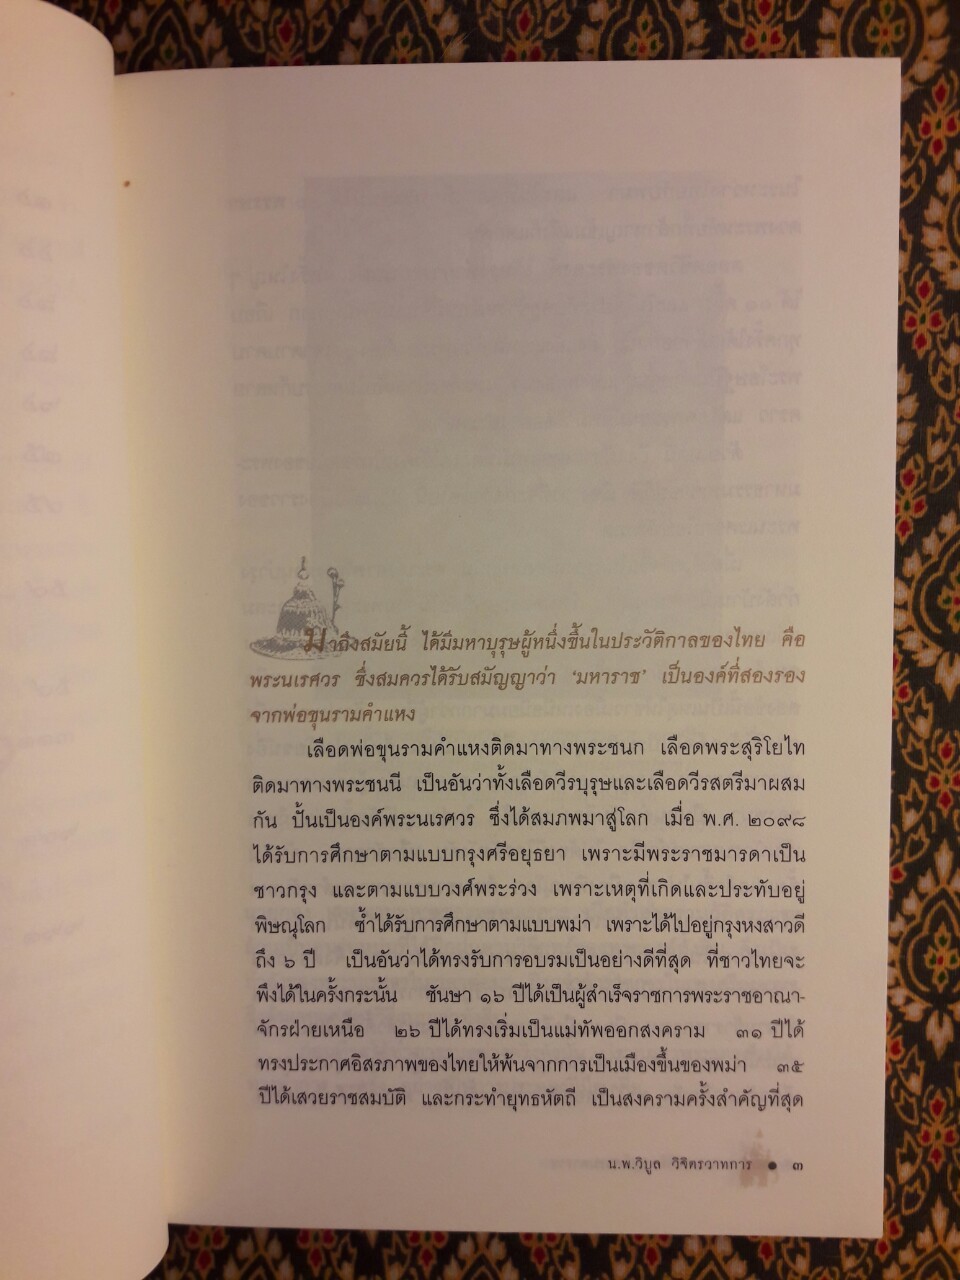 มาถึงสมัยนี้ ได้มีมหาบุรุษผู้หนึ่งขึ้นในประวัติกาลของไทย คือ
พระนเรศวร ซึ่งสมควรได้รับสมัญญาว่า ‘มหาราช’ เป็นองค์ที่สองรอง
จากพ่อขุนรามคำแหง
เลือดพ่อขุนรามคำแหงติดมาทางพระชนก เลือดพระสุริโยไท
ติดมาทางพระชนนี เป็นอันว่าทั้งเลือดวีรบุรุษและเลือดวีรสตรีมาผสม
กัน ปั้นเป็นองค์พระนเรศวร ซึ่งได้สมภพมาสู่โลก เมื่อ พ.ศ. ๒๐๙๘
ได้รับการศึกษาตามแบบกรุงศรีอยุธยา เพราะมีพระราชมารดาเป็น
ชาวกรุง และตามแบบวงศ์พระร่วง เพราะเหตุที่เกิดและประทับอยู่
พิษณุโลก ซ้ำได้รับการศึกษาตามแบบพม่า เพราะได้ไปอยู่กรุงหงสาวดี
ถึง ๖ ปี เป็นอันว่าได้ทรงรับการอบรมเป็นอย่างดีที่สุด ที่ชาวไทยจะ
พึงได้ในครั้งกระนั้น ชันษา ๑๖ ปีได้เป็นผู้สำเร็จราชการพระราชอาณา-
จักรฝ่ายเหนือ ๒๖ ปีได้ทรงเริ่มเป็นแม่ทัพออกสงคราม ๓๑ ปีได้
ทรงประกาศอิสรภาพของไทยให้พ้นจากการเป็นเมืองขึ้นของพม่า ๓๕
ปีได้เสวยราชสมบัติ และกระทำยุทธหัตถี เป็นสงครามครั้งสำคัญที่สุด
น.พ.วิบูล วิจิตรวาทการ ● ๓